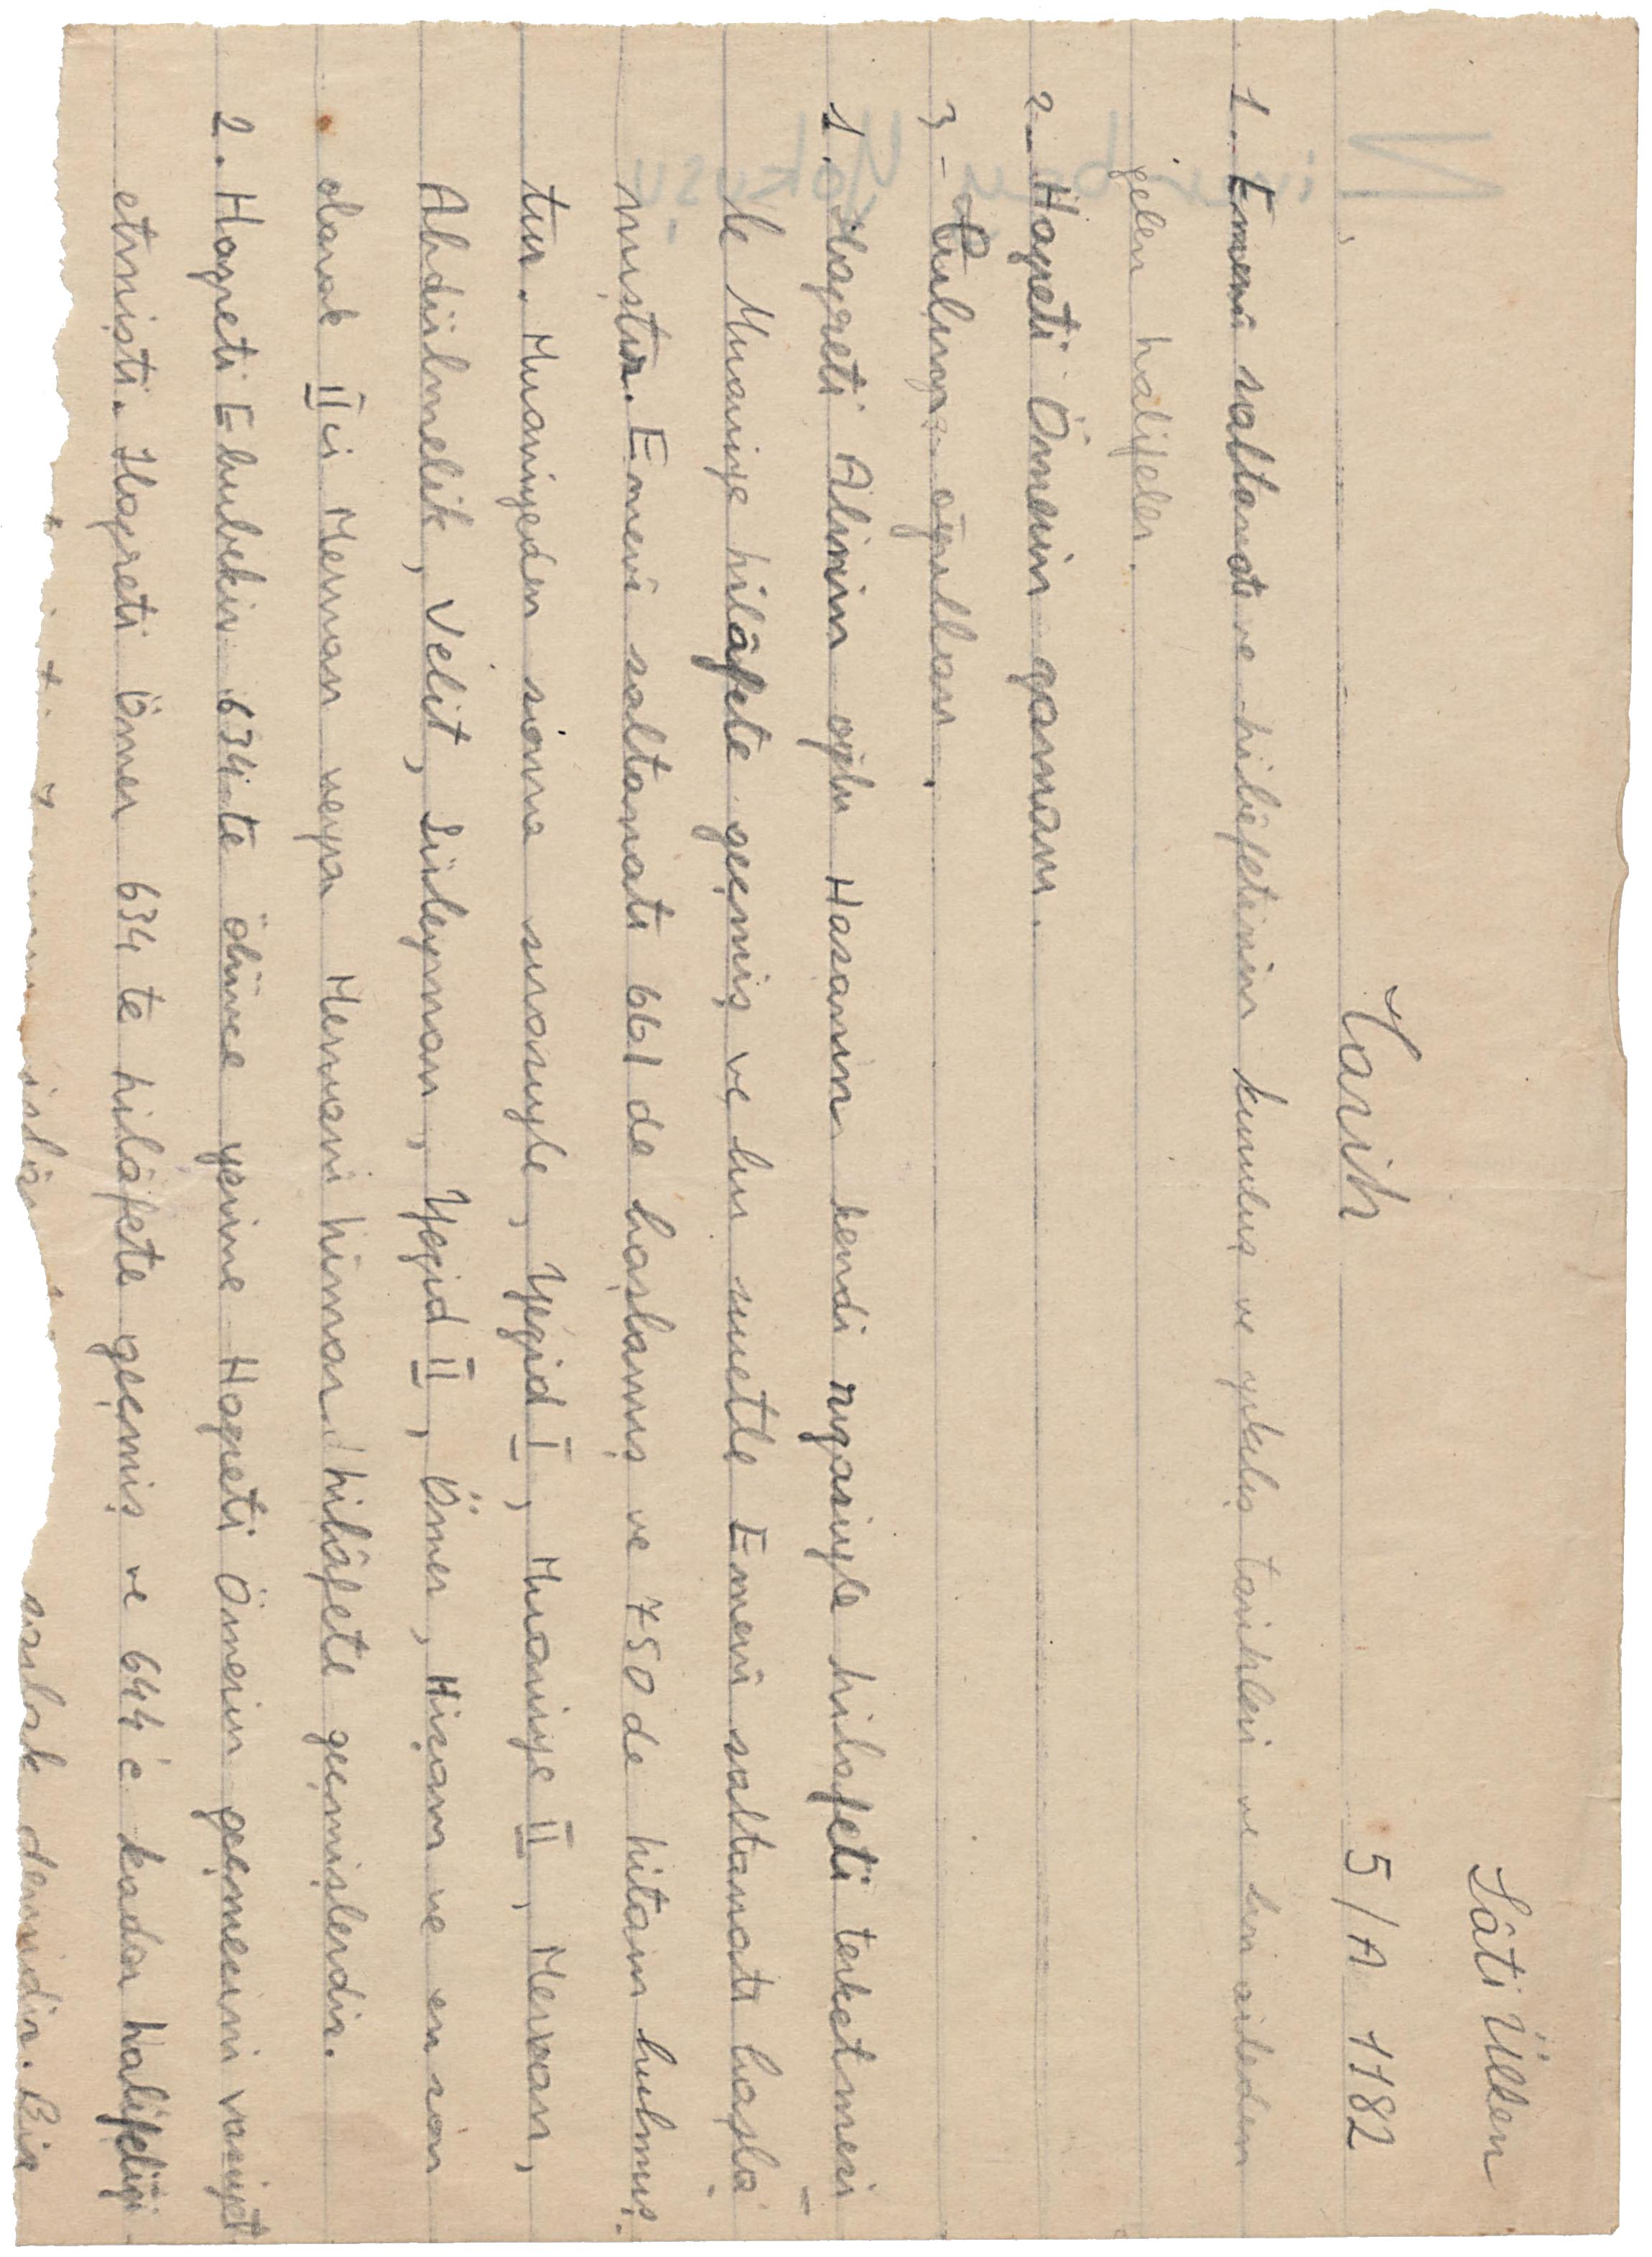 Sâti Ülken
Tarih 5/A 1182
1. Emevi saltanatı ve hilâfetinin kuruluş ve yıkılış tarihleri ve bu aileden
gelen halifeler.
2 - Hazreti Ömerin zamanı.
3 - oğulları.
1. Hazreti Alinin oğlu Hasanın kendi rızasiyle hilafeti terketmesi
le Muaviye hilâfete geçmiş ve bu suretle Emevi saltanatı başla
mıştır. Emevi saltanatı 661 de başlamış ve 750 de hitam bulmuş
tur. Muaviyeden sonra sırasıyle, Yezid I, Muaviye II, Mervan,
Abdülmelik, Velit, Süleyman, Yezid II, Ömer, Hişam ve en son
olarak II ci Mervan veya Mervani himar hilâfete geçmişlerdir.
2. Hazreti Ebubekir 634 te ölünce yerine Hazreti Ömerin geçmesini vasiyet
etmişti. Hazreti Ömer 634 te hilâfete geçmiş ve 644 e kadar halifeliği
islâm denirdir. Bir
Yokuşu